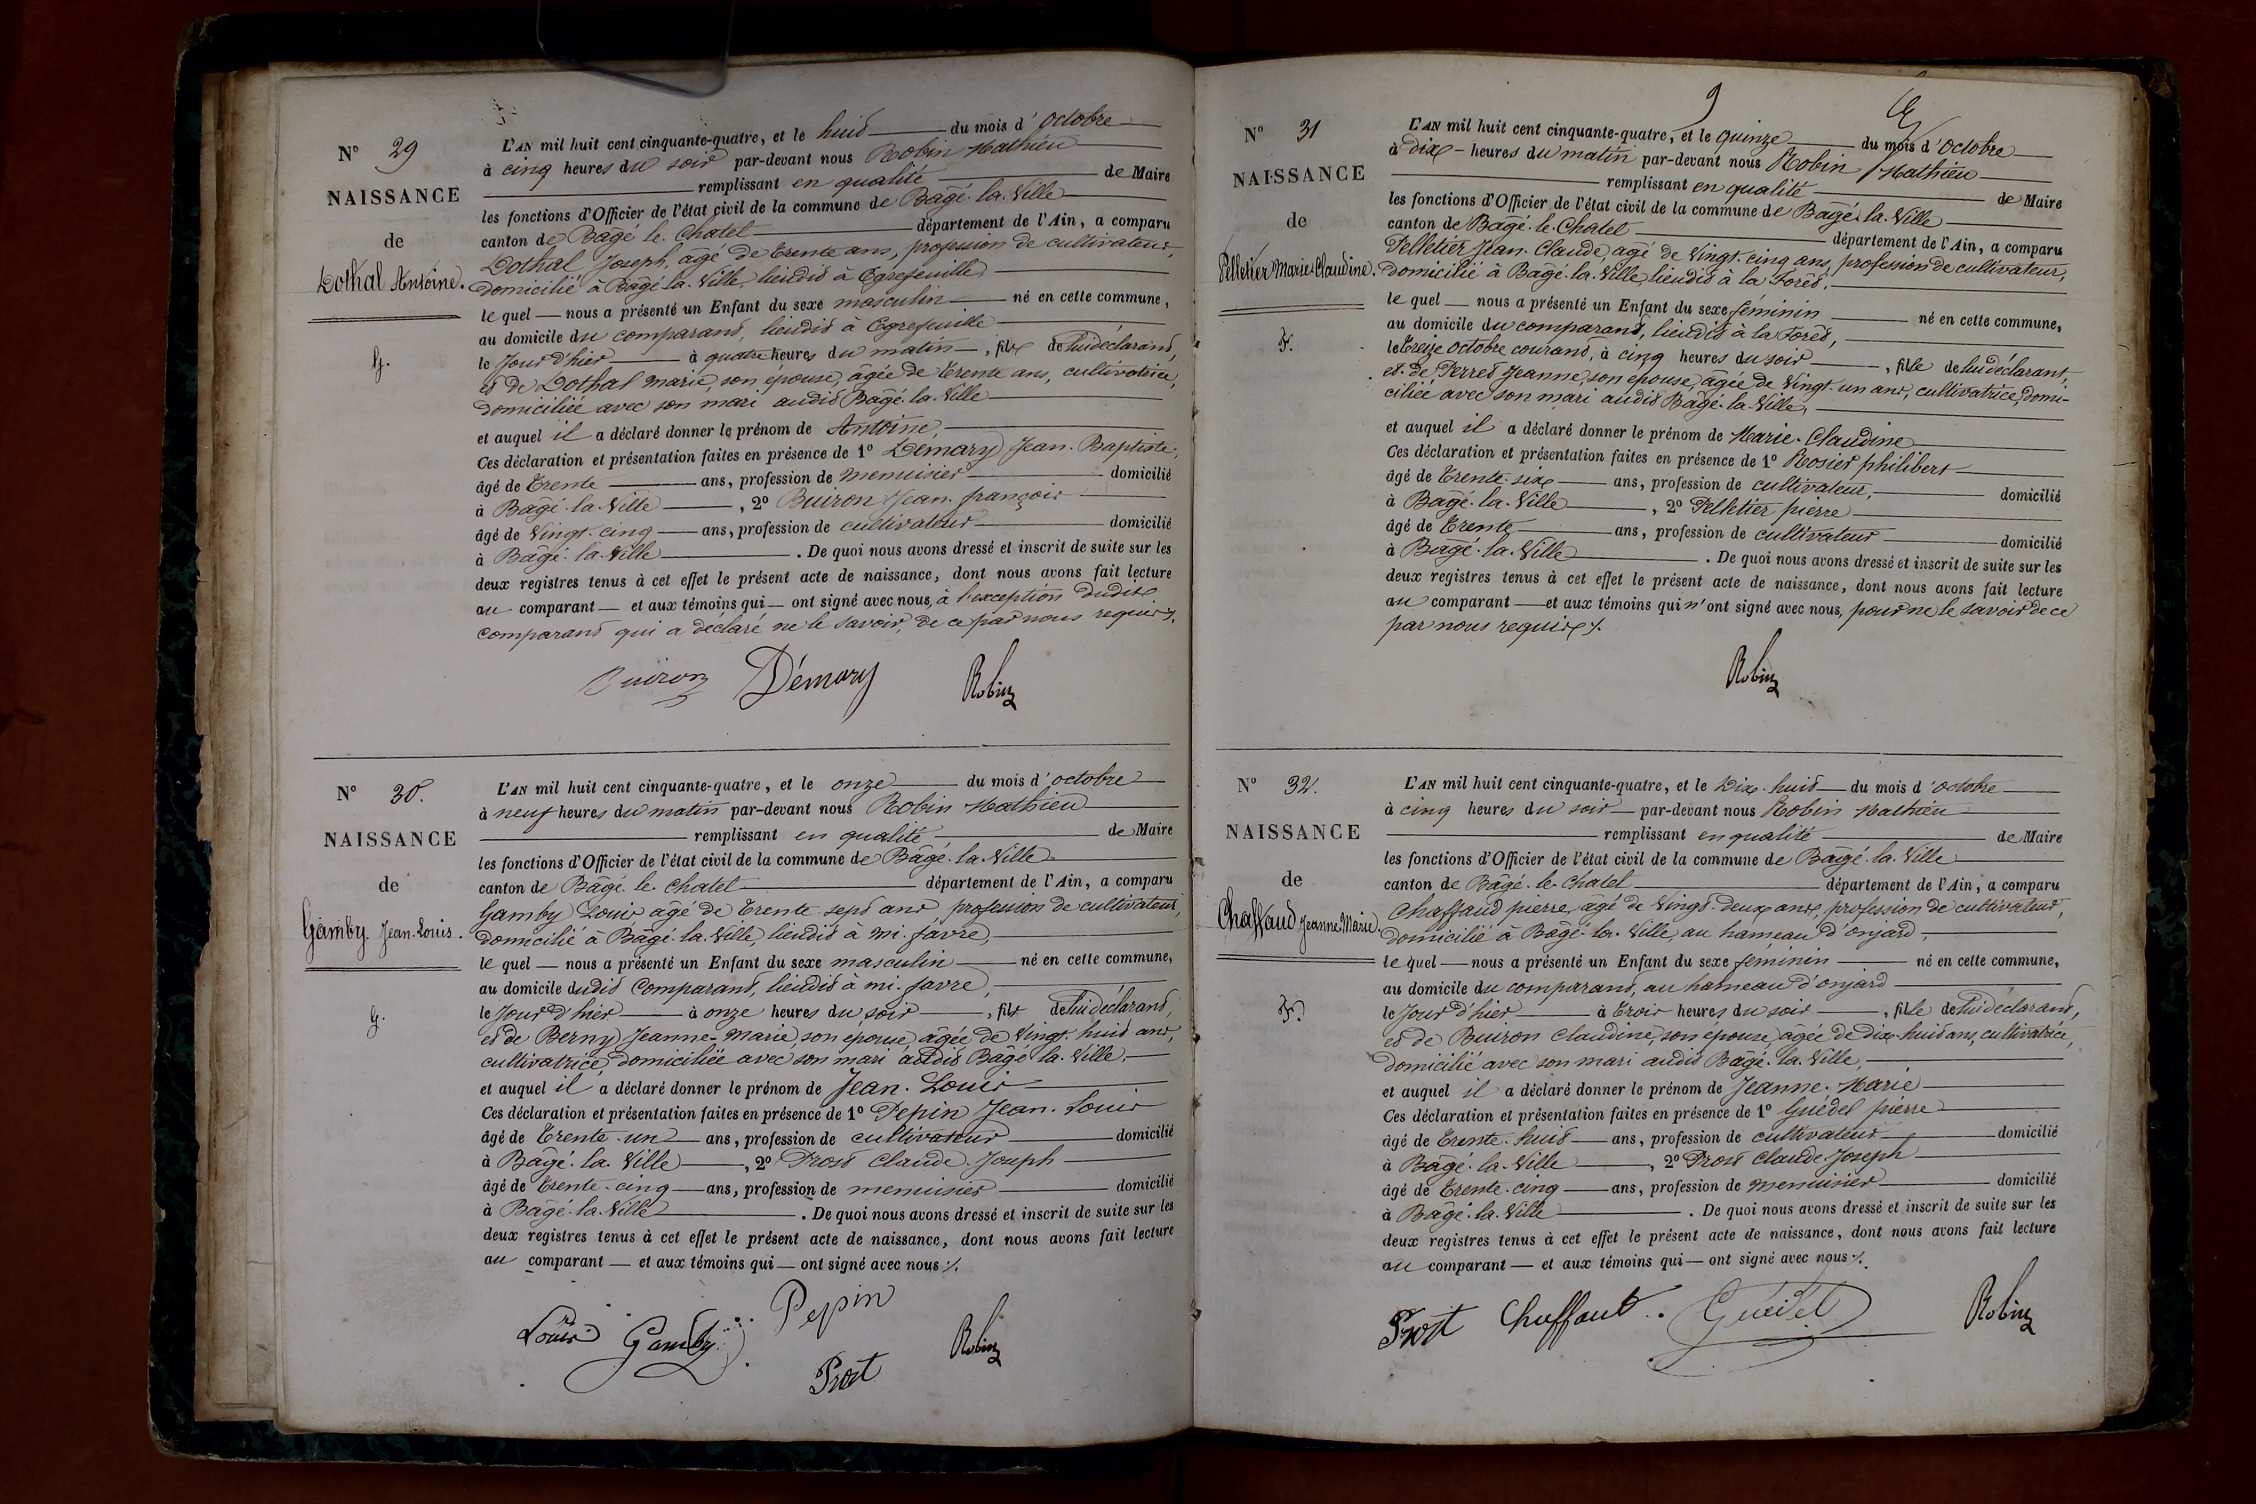 Nº 29
NAISSANCE
de
Dothal Antoine.
G.
L'AN mil huit cent cinquante-quatre, et le huit du mois d'octobre
à cinq heures du soir par-devant nous Robin Mathieu
remplissant en qualité de Maire
les fonctions d'Officier de l'état civil de la commune de Bâgé-la-Ville
canton de Bâgé-le-Chatel département de l'Ain, a comparu
Dothal Joseph, agé de trente ans, profession de cultivateur,
domicilié à Bagé-la-Ville, lieudit à Egrefeuille
le quel nous a présenté un Enfant du sexe masculin né en cette commune,
au domicile du comparant, lieudit à Egrefeuille
le jour d'hier à quatre heures du matin, fils de lui déclarant,
et de Dothal Marie, son épouse, âgée de trente ans, cultivatrice,
domiciliée avec son mari audit Bâgé-la-Ville
et auquel il a déclaré donner le prénom de Antoine
Ces déclaration et présentation faites en présence de 1º Démary Jean-Baptiste,
âgé de trente ans, profession de menuisier domicilié
à Bâgé-la-Ville, 2º Buiron Jean-françois
âgé de vingt-cinq ans, profession de cultivateur domicilié
à Bâgé-la-Ville. De quoi nous avons dressé et inscrit de suite sur les
deux registres tenus à cet effet le présent acte de naissance, dont nous avons fait lecture
au comparant et aux témoins qui ont signé avec nous, à l'exception dudit
comparant qui a déclaré ne le savoir, de ce par nous requis.
Buiron Démary Robin
Nº 30.
NAISSANCE
de
Gamby Jean-Louis.
G.
L'AN mil huit cent cinquante-quatre, et le onze du mois d'octobre
à neuf heures du matin par-devant nous Robin Mathieu
remplissant en qualité de Maire
les fonctions d'Officier de l'état civil de la commune de Bâgé-la-Ville
canton de Bâgé-le-Chatel département de l'Ain, a comparu
Gamby Louis, agé de trente-sept ans, profession de cultivateur,
domicilié à Bâgé-la-Ville, lieudit à Mi-favre,
le quel nous a présenté un Enfant du sexe masculin né en cette commune,
au domicile dudit comparant, lieudit à mi-favre,
le jour d'hier à onze heures du soir, fils de lui déclarant,
et de Berny Jeanne-Marie, son épouse, âgée de vingt-huit ans,
cultivatrice, domiciliée avec son mari audit Bâgé-la-Ville.
et auquel il a déclaré donner le prénom de Jean-Louis
Ces déclaration et présentation faites en présence de 1º Pepin Jean-Louis
âgé de trente-un ans, profession de cultivateur domicilié
à Bâgé-la-Ville, 2º Prost Claude-Joseph
âgé de trente-cinq ans, profession de menuisier domicilié
à Bâgé-la-Ville. De quoi nous avons dressé et inscrit de suite sur les
deux registres tenus à cet effet le présent acte de naissance, dont nous avons fait lecture
au comparant et aux témoins qui ont signé avec nous.
Louis Gamby Pepin
Prost Robin
9
Nº 31
NAISSANCE
de
Pelletier Marie-Claudine.
F.
L'AN mil huit cent cinquante-quatre, et le quinze du mois d'octobre
à dix heures du matin par-devant nous Robin Mathieu
remplissant en qualité de Maire
les fonctions d'Officier de l'état civil de la commune de Bâgé-la-Ville
canton de Bâgé-le-Chatel département de l'Ain, a comparu
Pelletier Jean-Claude, agé de vingt-cinq ans, profession de cultivateur,
domicilié à Bâgé-la-Ville, lieudit à la Forêt,
le quel nous a présenté un Enfant du sexe féminin né en cette commune,
au domicile du comparant, lieudit à la Forêt,
le treize octobre courant, à cinq heures du soir, fille de lui déclarant,
et de Perret Jeanne, son épouse, âgée de vingt-un ans, cultivatrice, domi-
ciliée avec son mari audit Bâgé-la-Ville,
et auquel il a déclaré donner le prénom de Marie-Claudine
Ces déclaration et présentation faites en présence de 1º Rosier philibert
âgé de trente-six ans, profession de cultivateur, domicilié
à Bâgé-la-Ville, 2º Pelletier pierre
âgé de trente ans, profession de cultivateur domicilié
à Bâgé-la-Ville. De quoi nous avons dressé et inscrit de suite sur les
deux registres tenus à cet effet le présent acte de naissance, dont nous avons fait lecture
au comparant et aux témoins qui n'ont signé avec nous, pour ne le savoir de ce
par nous requis.
Robin
Nº 32.
NAISSANCE
de
Chaffaud Jeanne-Marie.
F.
L'AN mil huit cent cinquante-quatre, et le dix-huit du mois d'octobre
à cinq heures du soir par-devant nous Robin Mathieu
remplissant en qualité de Maire
les fonctions d'Officier de l'état civil de la commune de Bâgé-la-Ville
canton de Bâgé-le-Chatel département de l'Ain, a comparu
Chaffaud pierre, agé de vingt-deux ans, profession de cultivateur,
domicilié à Bâgé-la-Ville, au hameau d'onjard,
le quel nous a présenté un Enfant du sexe féminin né en cette commune,
au domicile du comparant, au hameau d'onjard
le jour d'hier à trois heures du soir, fille de lui déclarant,
et de Buiron Claudine, son épouse, âgée de dix-huit ans, cultivatrice,
domicilié avec son mari audit Bâgé-la-Ville,
et auquel il a déclaré donner le prénom de Jeanne-Marie
Ces déclaration et présentation faites en présence de 1º Guédel pierre
âgé de trente-huit ans, profession de cultivateur domicilié
à Bâgé-la-Ville, 2º Prost Claude-Joseph
âgé de trente-cinq ans, profession de menuisier domicilié
à Bâgé-la-Ville. De quoi nous avons dressé et inscrit de suite sur les
deux registres tenus à cet effet le présent acte de naissance, dont nous avons fait lecture
au comparant et aux témoins qui ont signé avec nous.
Prost Chaffaud Guédel Robin